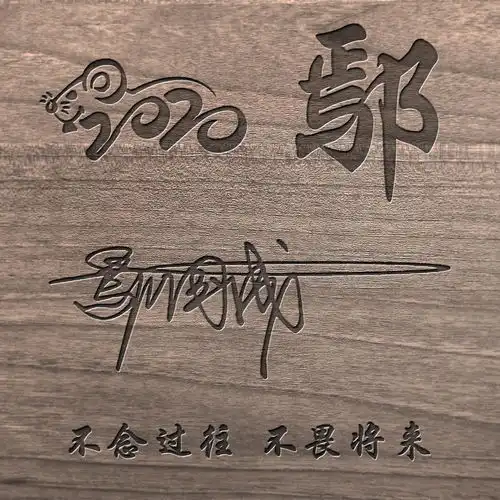 2020 鄢
不念过往 不畏将来